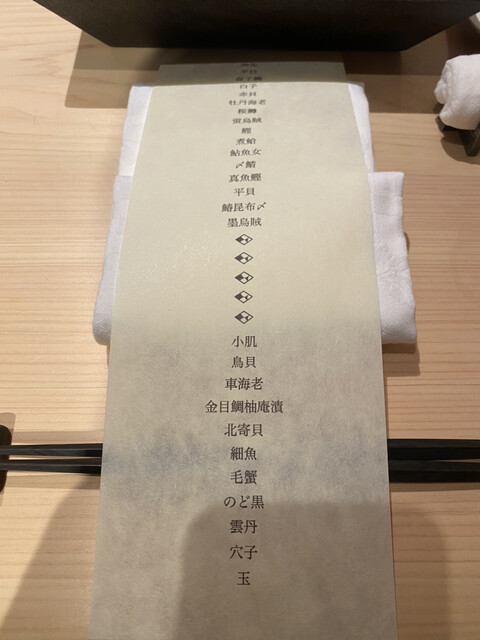 平目
春子鯛
白子
赤貝
牡丹海老
桜鱒
蛍烏賊
鰹
煮蛤
鮎魚女
〆鯖
真魚鰹
平貝
鰆昆布〆
墨烏賊
小肌
鳥貝
車海老
金目鯛柚庵漬
北寄貝
細魚
毛蟹
のど黒
雲丹
穴子
玉